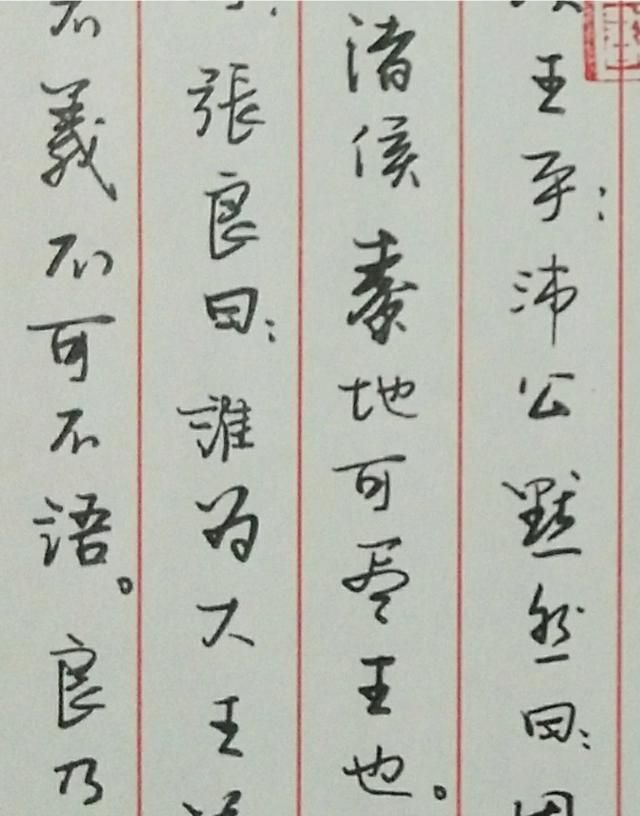 王乎:沛公默然曰:
诸侯秦地可尽王也。
張良曰:誰为大王
不義不可不語。良乃